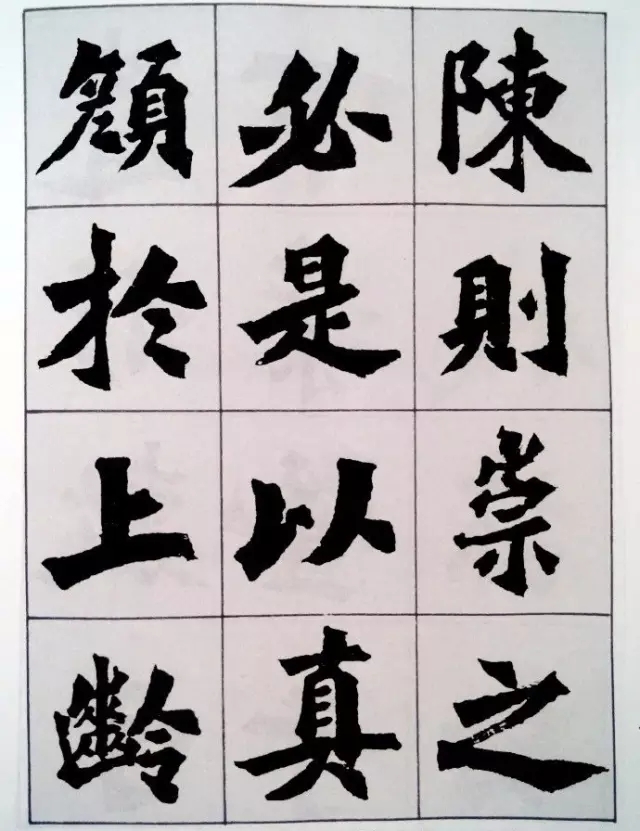 陳則崇之
必是以真
顏於上齡